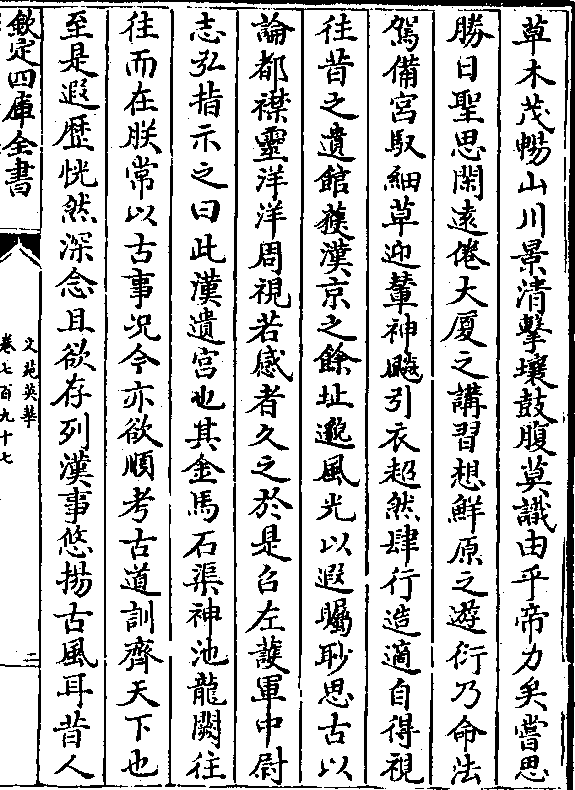 草木茂暢山川景清擊壤鼓腹莫識由乎帝力矣嘗思
勝日聖思閑逺倦大厦之講習想鮮原之遊衍乃命法
駕備宮馭細草迎輦神飈引衣超然肆行造適自得視
往昔之遺館獲漢京之餘址邈風光以遐矚眇思古以
論都襟靈洋洋周視若感者久之於是召左䕶軍中尉
志弘指示之曰此漢遺宫也其金馬石渠神池龍闕往
往而在朕常以古事况今亦欲順考古道訓齊天下也
至是遐歴恍然深念且欲存列漢事悠揚古風耳昔人
欽定四庫全書
文苑英華
卷七百九十七
二